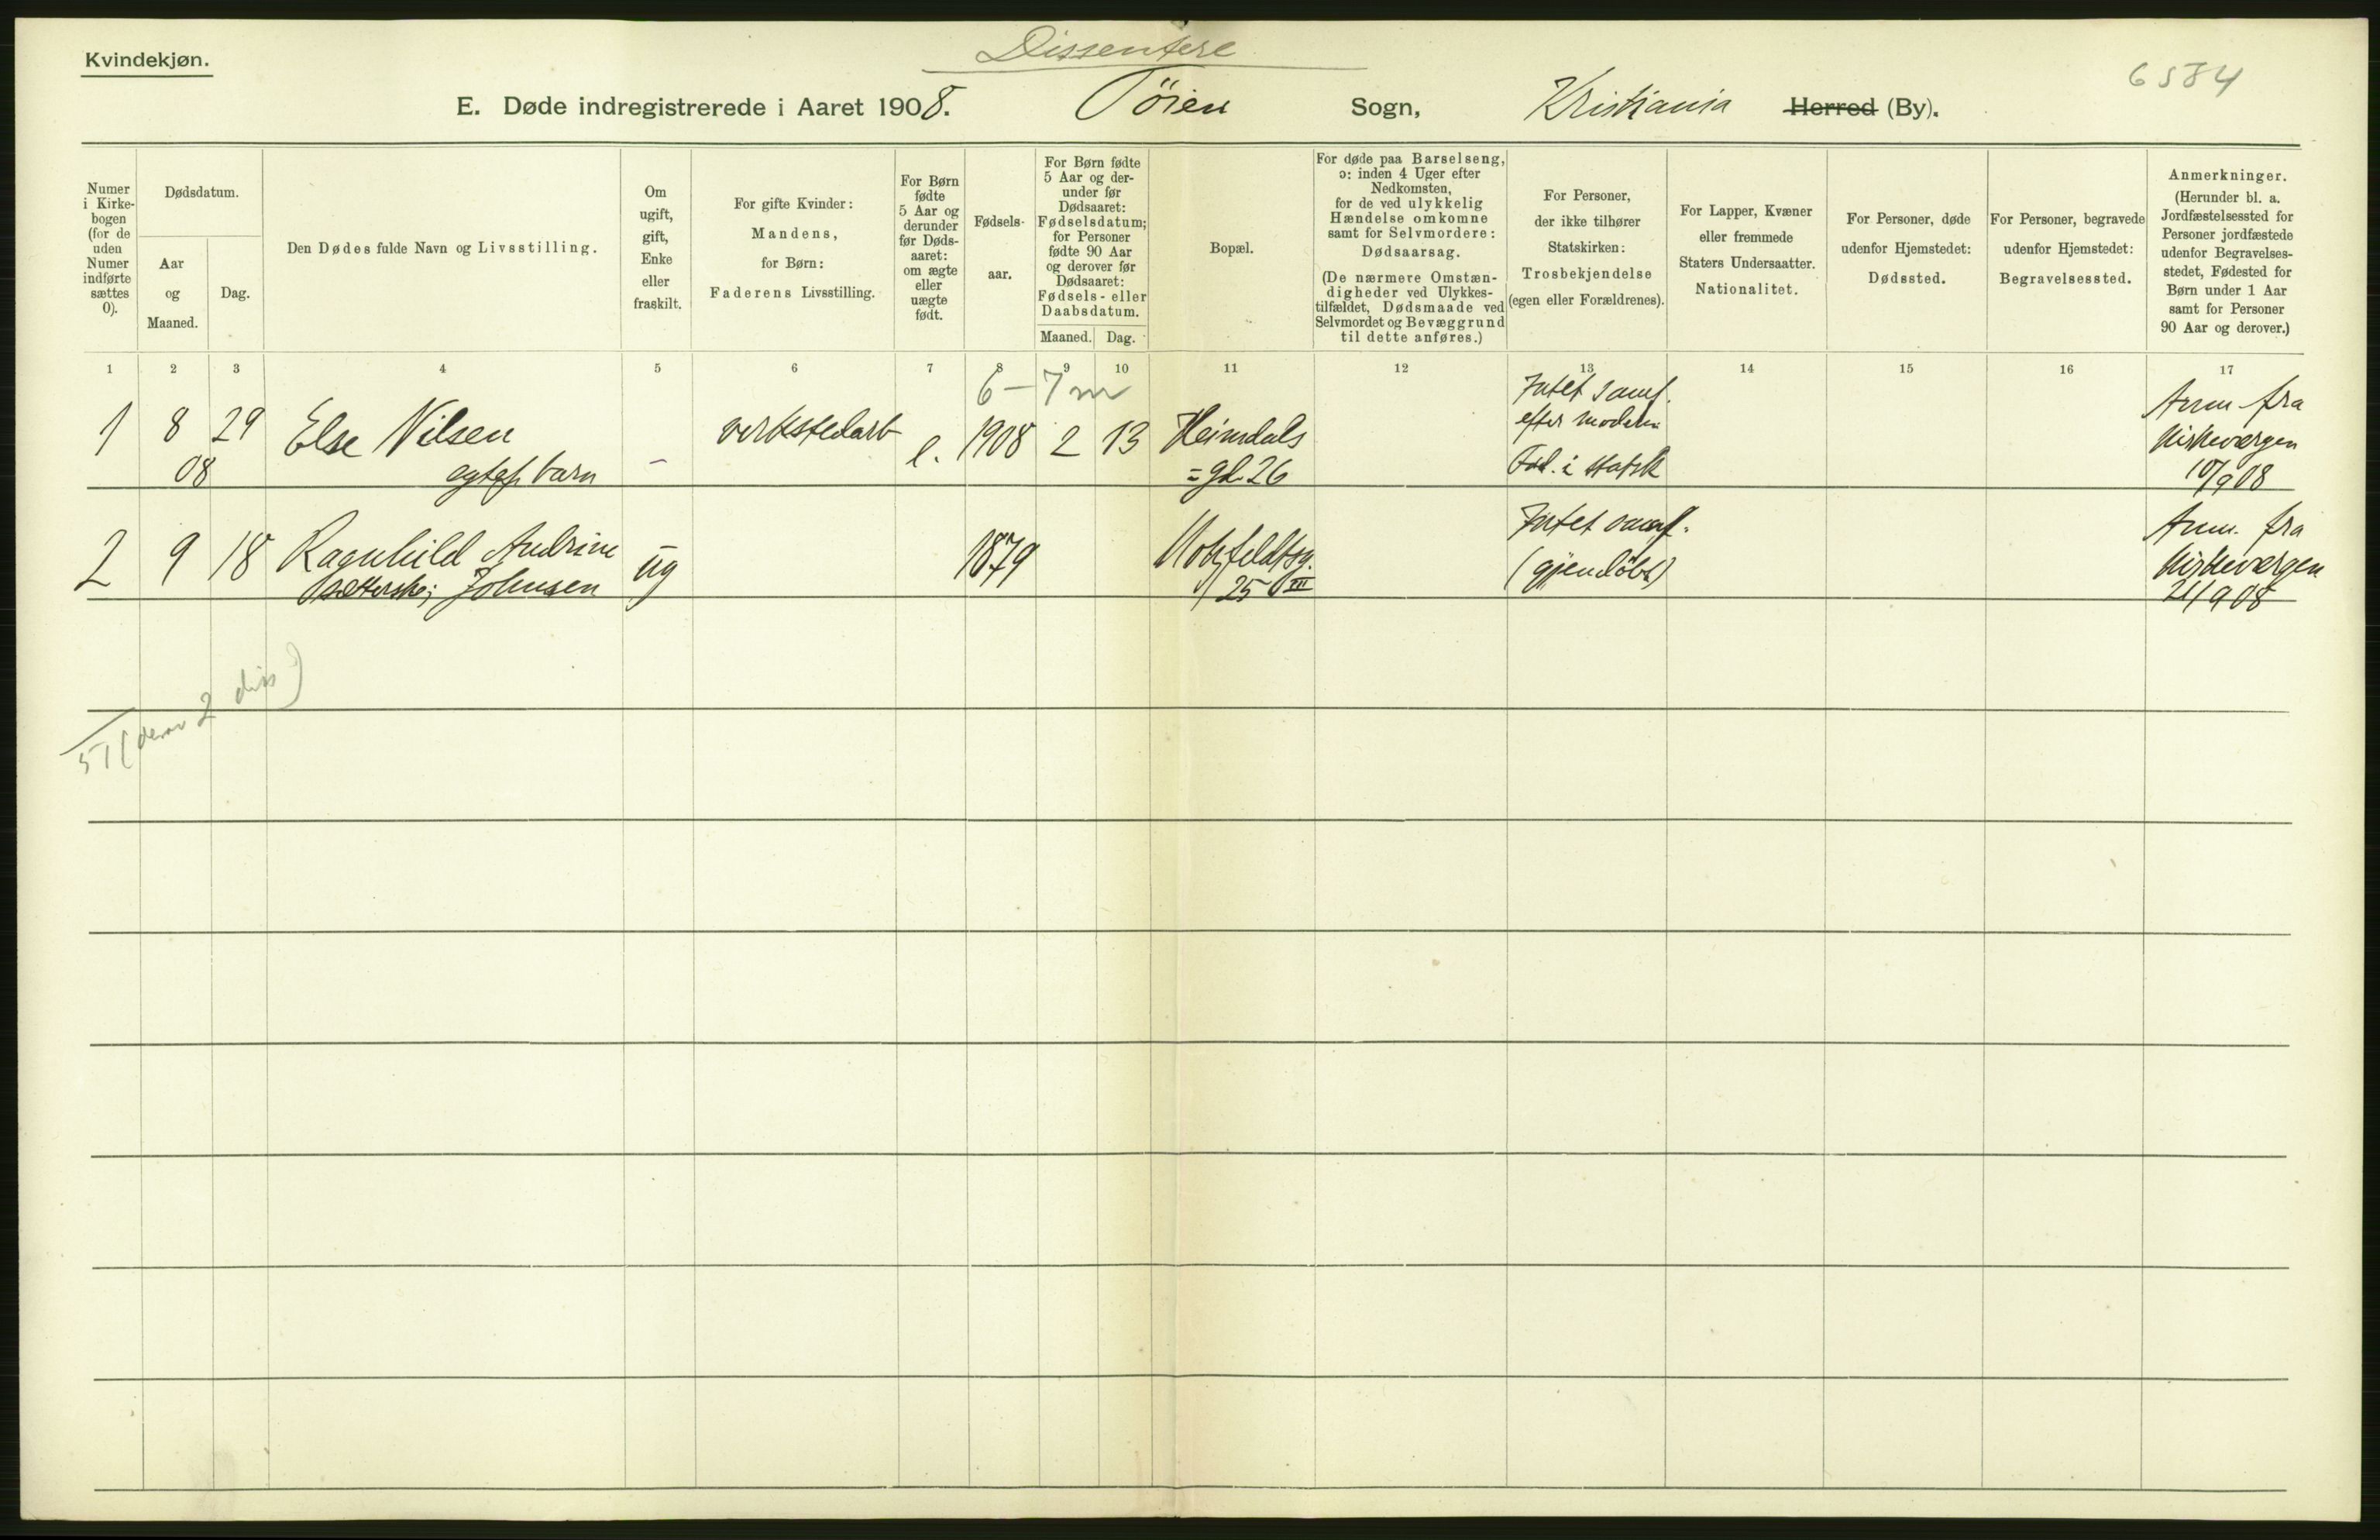 Kvindekjøn.
Dissentere
6584
E. Døde indregistrerede i Aaret 1908. Töien Sogn, Kristiania Herred (By).
Numer
i Kirke-
bogen
(for de
uden
Numer
indførte
sættes
0).
Dødsdatum.
Aar
og
Maaned.
Dag.
Den Dødes fulde Navn og Livsstilling.
Om
ugift,
gift,
Enke
eller
fraskilt.
For gifte Kvinder:
Mandens,
for Børn:
Faderens Livsstilling.
For Børn
fødte
5 Aar og
derunder
før Døds-
aaret:
om ægte
eller
uægte
født.
Fødsels-
aar.
For Børn fødte
5 Aar og der-
under før
Dødsaaret:
Fødselsdatum;
for Personer
fødte 90 Aar
og derover før
Dødsaaret:
Fødsels- eller
Daabsdatum.
Maaned. Dag.
Bopæl.
For døde paa Barselseng,
ɔ: inden 4 Uger efter
Nedkomsten,
for de ved ulykkelig
Hændelse omkomne
samt for Selvmordere:
Dødsaarsag.
(De nærmere Omstæn-
digheder ved Ulykkes-
tilfældet, Dødsmaade ved
Selvmordet og Bevæggrund
til dette anføres.)
For Personer,
der ikke tilhører
Statskirken:
Trosbekjendelse
(egen eller Forældrenes).
For Lapper, Kvæner
eller fremmede
Staters Undersaatter.
Nationalitet.
For Personer, døde
udenfor Hjemstedet:
Dødssted.
For Personer, begravede
udenfor Hjemstedet:
Begravelsessted.
Anmerkninger.
(Herunder bl. a.
Jordfæstelsessted for
Personer jordfæstede
udenfor Begravelses-
stedet, Fødested for
Børn under 1 Aar
samt for Personer
90 Aar og derover.)
1 2 3 4 5 6 7 8 9 10 11 12 13 14 15 16 17
6-7 m
1
8
08
29
Else Nilsen
barn
-
verkstedarb
e.
1908
2
13
Heimdals
=gd. 26
Intet samf.
efter moderen
i statsk
Anm. fra
Kirkeværgen
10/9 08
2
9
18
Ragnhild Andrine
Johnsen
ug
1879
Motzfeldtsg.
25 III
Intet samf.
(gjendöbt)
Anm. fra
Kirkeværgen
21/9 08
51 (derav 2 diss)